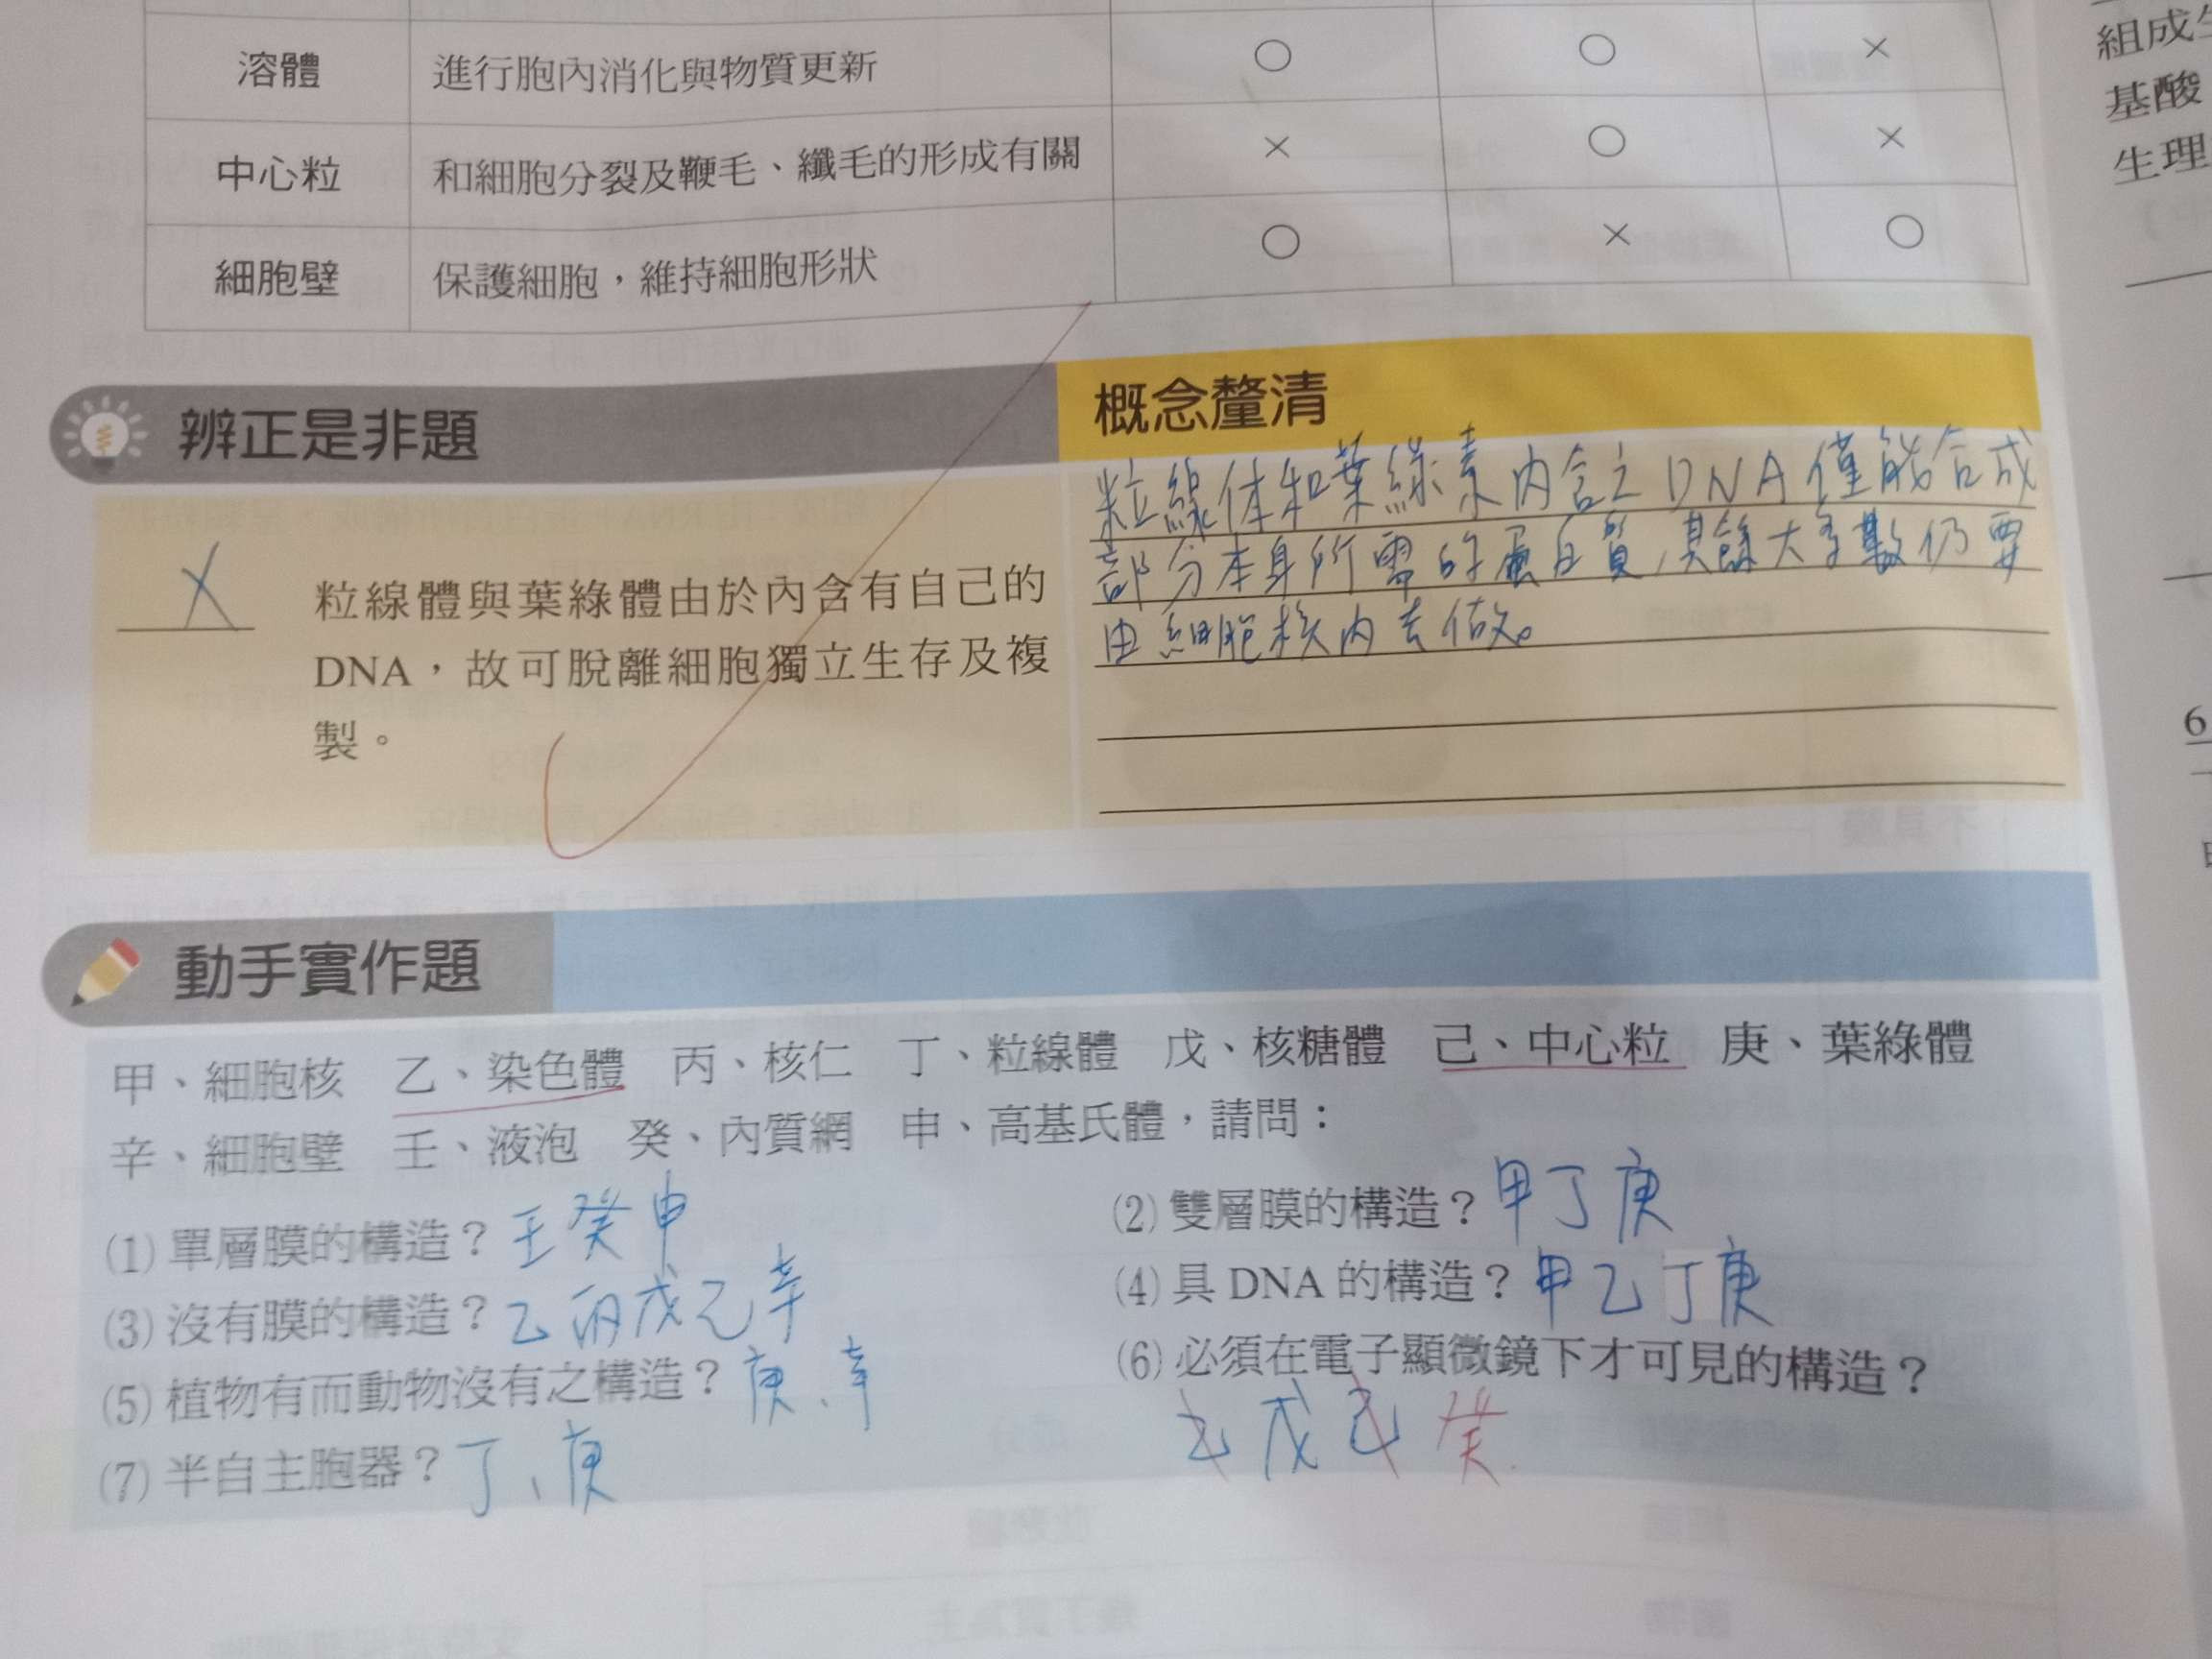 溶體 進行胞內消化與物質更新 ○ ○ ×
中心粒 和細胞分裂及鞭毛、纖毛的形成有關 × ○ ×
細胞壁 保護細胞,維持細胞形狀 ○ × ○
辨正是非題
X 粒線體與葉綠體由於內含有自己的
DNA,故可脫離細胞獨立生存及複
製。
概念釐清
粒線体和葉綠素內含之DNA僅能合成
部分本身所需的蛋白質,其餘大多數仍要
由細胞核內去做。
動手實作題
甲、細胞核 乙、染色體 丙、核仁 丁、粒線體 戊、核糖體 己、中心粒 庚、葉綠體
辛、細胞壁 壬、液泡 癸、內質網 申、高基氏體,請問:
(1) 單層膜的構造?壬癸申
(2) 雙層膜的構造?甲丁庚
(3) 沒有膜的構造?乙丙戊己辛
(4) 具 DNA 的構造?甲乙丁庚
(5) 植物有而動物沒有之構造?庚、辛
(6) 必須在電子顯微鏡下才可見的構造?
乙戊己癸
(7) 半自主胞器?丁、庚
組成
基酸
生理
6